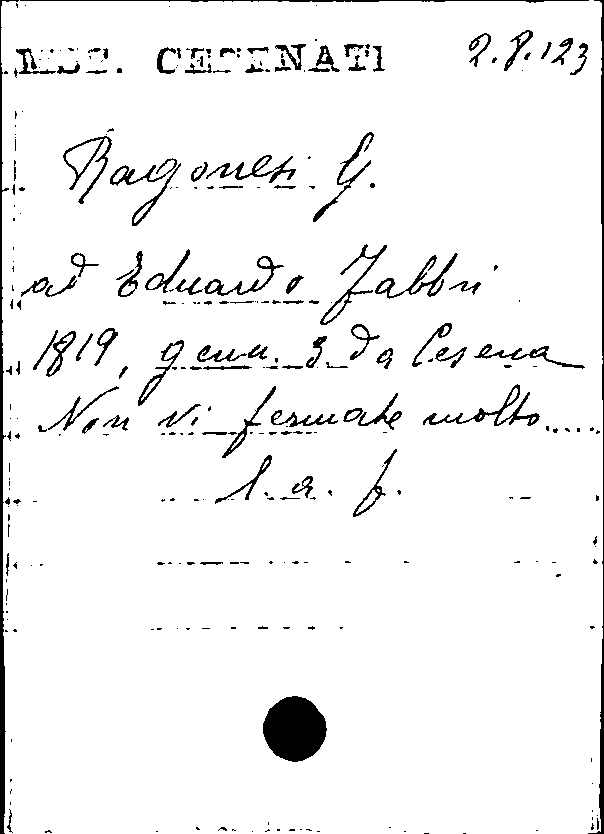 MSS. CESENATI 2.8.123
Ragonesi G.
ad Eduardo Fabbri
1819, genn. 3 da Cesena
Non vi fermate molto.....
l. a. f.